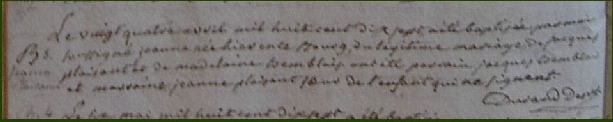 Le vingt quatre avril mil huit cent dix sept a été baptisée par moi
B 3. soussigné jeanne née hier en ce Bourg, du légitime mariage de jacques
jeanne plaisant et de madelaine Demblais ont été parrain jacques Demblais
et marraine jeanne plaisant sœur de l'enfant qui ne signent
Durand
mai mil huit cent dix sept a été